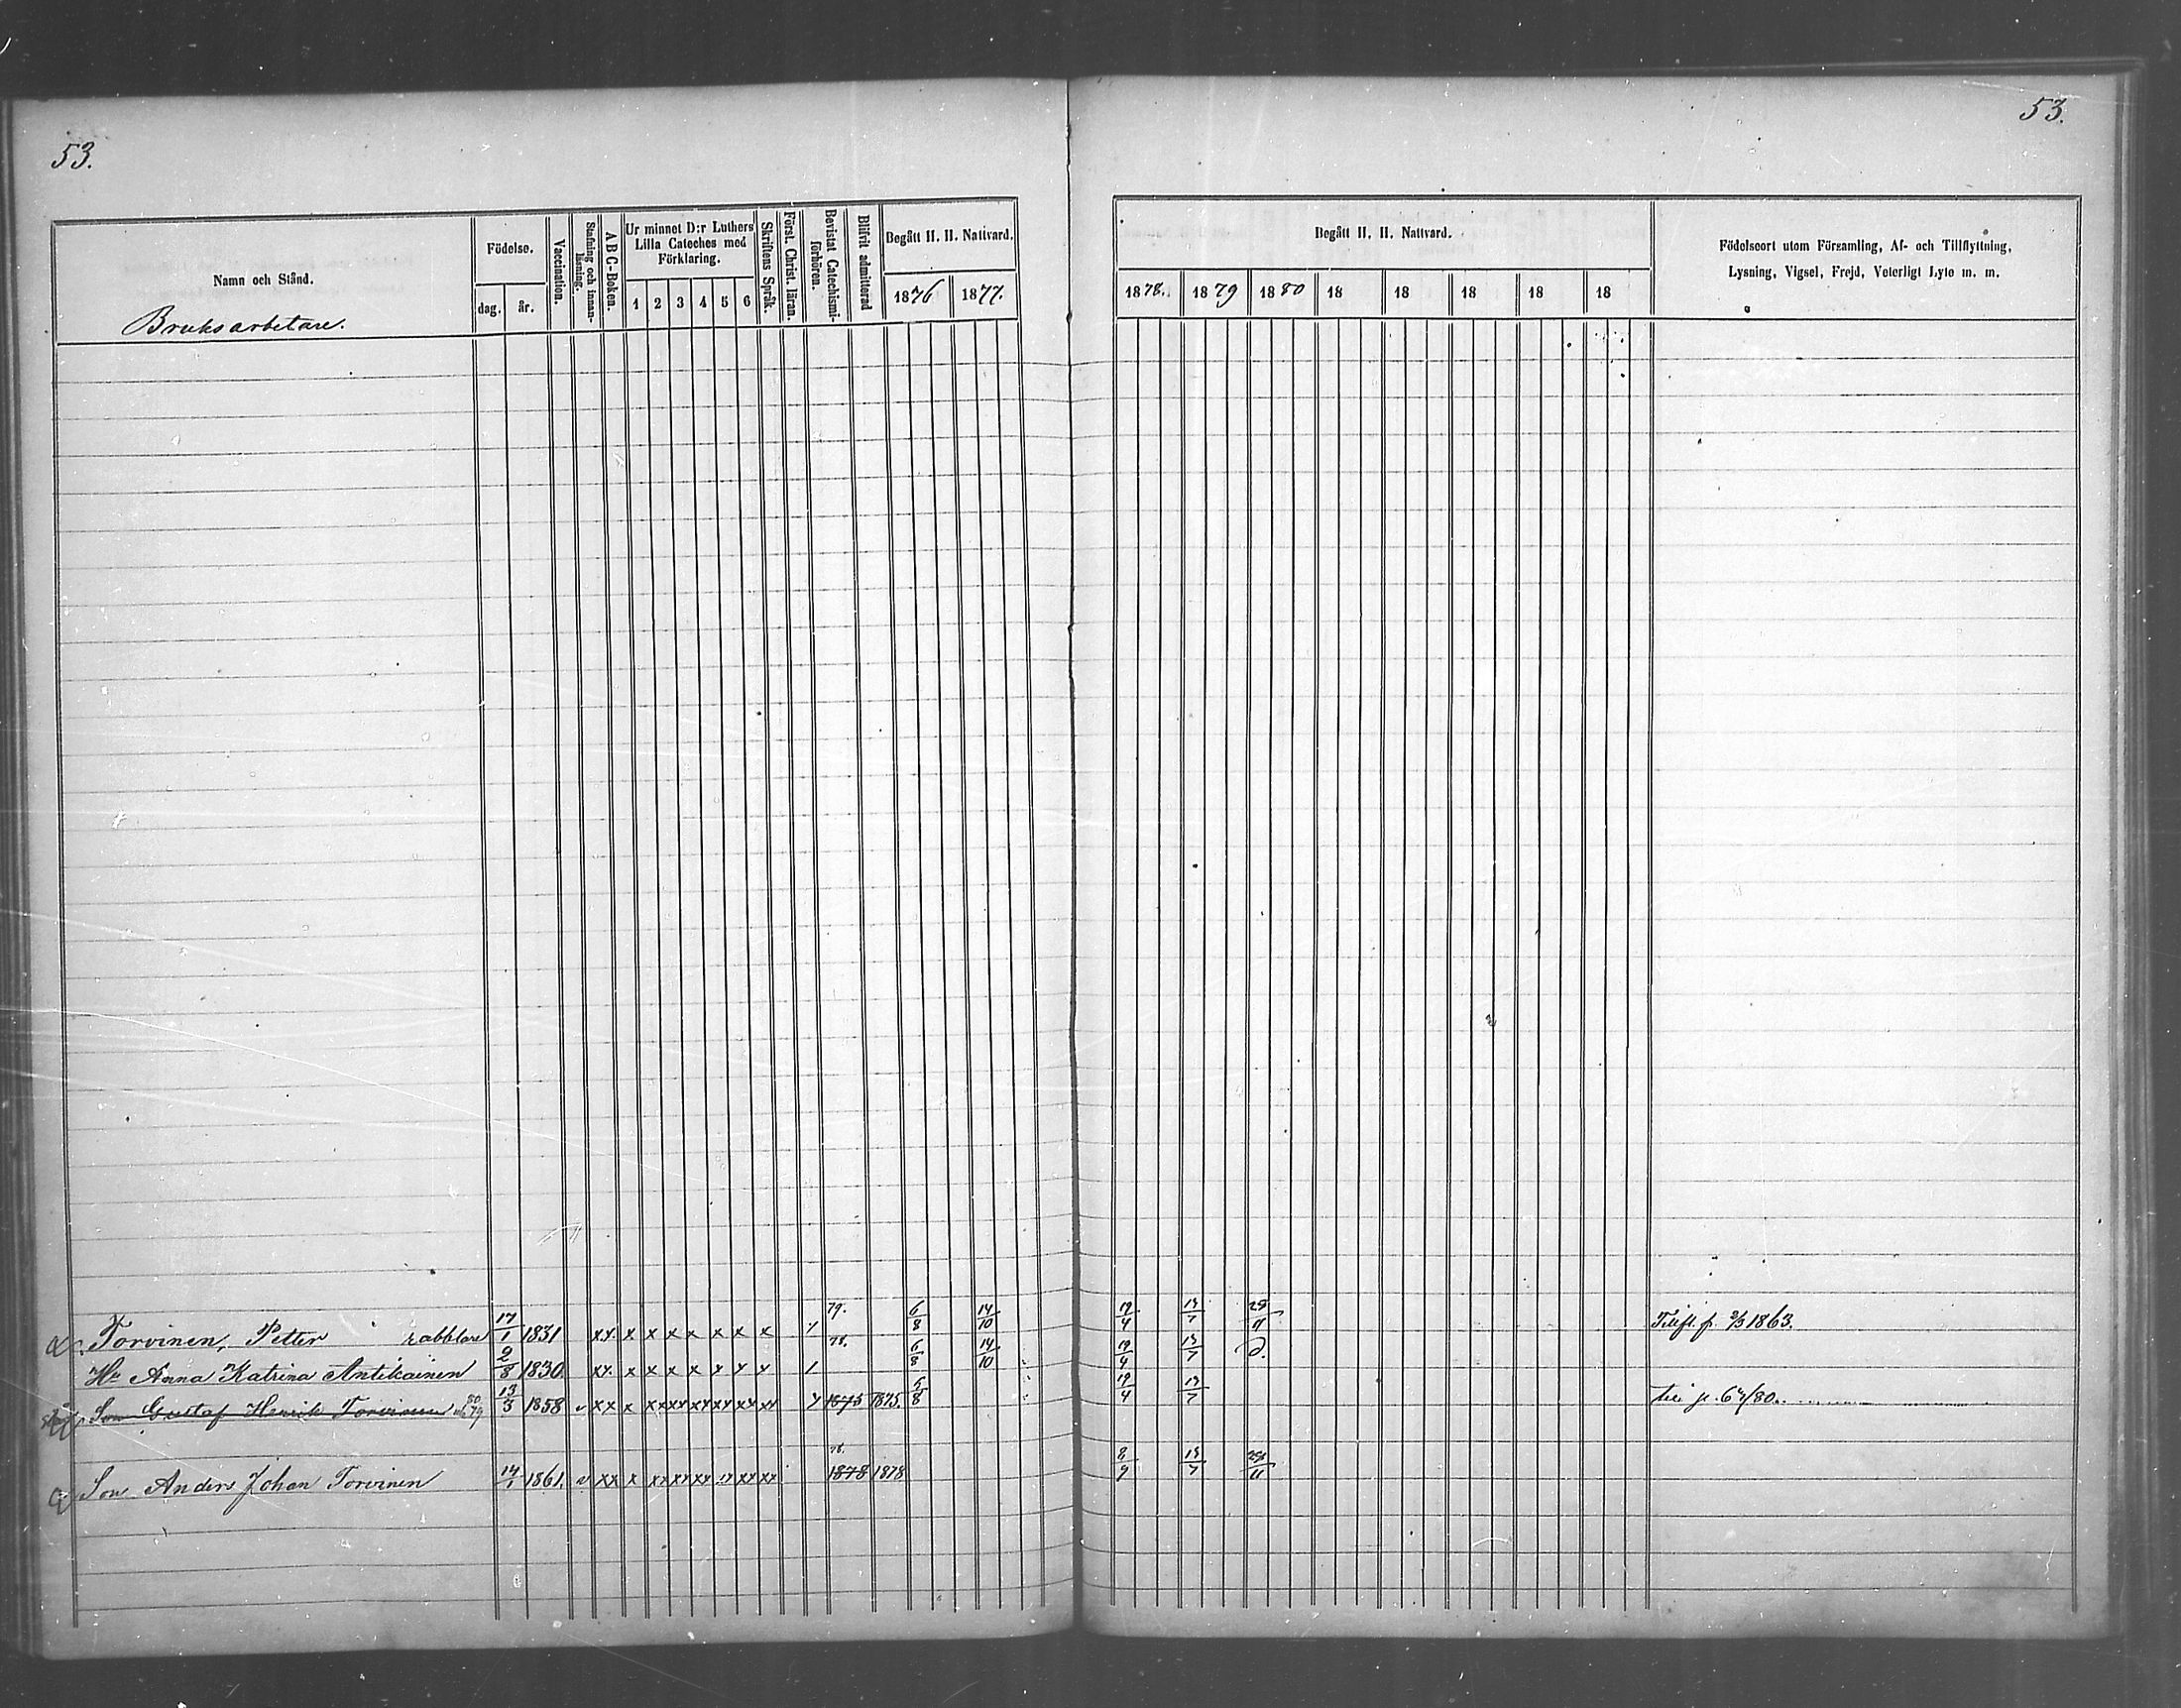 53.
53.
Namn och Stånd.
Bruksarbetare.
Födelse.
dag. år.
Vaccination.
Stafning och innan-läsning.
A B C-Boken.
Ur minnet D:r Luthers Lilla Cateches med Förklaring.
1 2 3 4 5 6
Skriftens Språk.
Först. Christ. läran.
Bevistat Catechismi-förhören.
Blifvit admitterad
Begått H. H. Nattvard.
1876 1877.
Begått H. H. Nattvard.
1878. 1879 1880 18 18 18 18 18
Födelseort utom Församling, Af- och Tillflyttning,
Lysning, Vigsel, Frejd, Veterligt Lyte m. m.
Torvinen, Petter 17/1 1831 xx x x x x x x x 79. 6/8 14/10 19/4 13/7 1863.
Hu Anna Katrina Antikainen 2/8 1830. xx x x x x 78. 6/8 14/10 19/4 13/7
Son Gustaf Henrik Torvinen 13/3 1858 v xx x xx xx xx xx xx xx 1875 1875. 6/8 19/4 13/7
Son Anders Johan Torvinen 14/1 1861. v xx x xx xx xx xx xx 78. 1878 1878 8/9 13/7